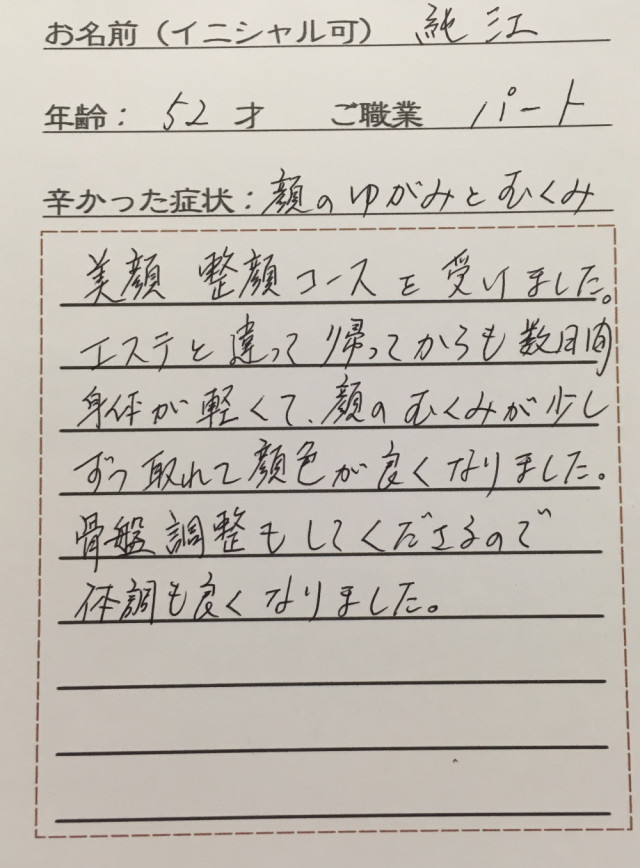 お名前（イニシャル可） 純江
年齢： 52 才 ご職業 パート
辛かった症状：顔のゆがみとむくみ
美顔 整顔コースを受けました。
エステと違って帰ってからも数日間
身体が軽くて、顔のむくみが少し
ずつ取れて顔色が良くなりました。
骨盤調整もしてくださるので
体調も良くなりました。